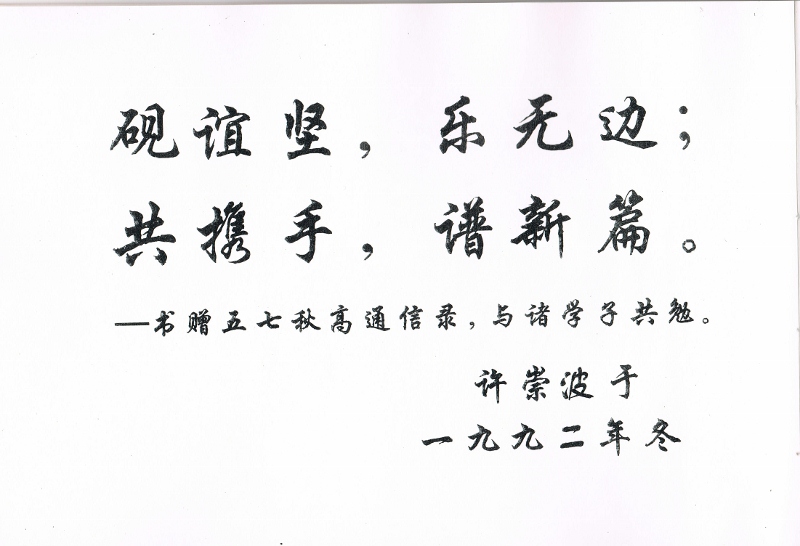 砚谊坚，乐无边；
共携手，谱新篇。
—书赠五七秋高通信录，与诸学子共勉。
许崇波于
一九九二年冬